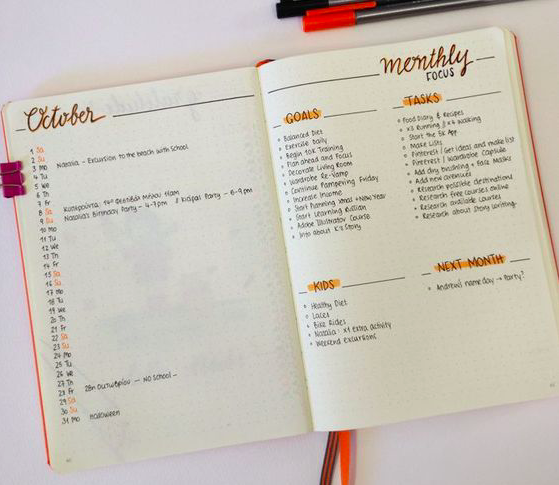 October
1 Sa
2 Su
3 Mo Natalia - Excursion to the beach with School
4 Tu
5 We
6 Th
7 Fr
8 Sa
9 Su Natalia's Birthday Party - 4-7pm // Kidsfun Party - 6-9pm
10 Mo
11 Tu
12 We
13 Th
14 Fr
15 Sa
16 Su
17 Mo
18 Tu
19 We
20 Th
21 Fr
22 Sa
23 Su
24 Mo
25 Tu
26 We
27 Th
28 Fr 28η Οκτωβρίου - NO School -
29 Sa
30 Su
31 Mo Halloween
monthly
FOCUS
GOALS
Balanced Diet
Exercise Daily
Begin 10K Training
Plan ahead and Focus
Decorate Living Room
Wardrobe Re-vamp
Continue Pampering Friday
Increase Income
Start Planning Xmas + New Year
Start Learning Russian
Adobe Illustrator Course
Info about K's Story
TASKS
Food Diary & Recipes
x3 Running // x4 Walking
Start the 5K App
Make Lists
Pinterest / Get ideas and make list
Pinterest / Wardrobe Capsule
Add dry brushing + Face Masks
Add new avenues
Research possible destinations
Research free courses online
Research available courses
Research about story writing
KIDS
Healthy Diet
Laces
Bike Rides
Natalia: x1 extra activity
Weekend excursions
NEXT MONTH
Andrew's nameday → Party?